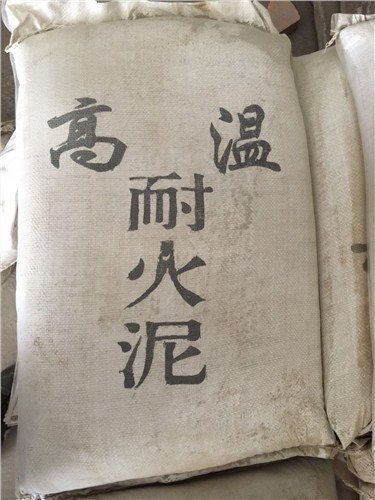 高温
耐火泥